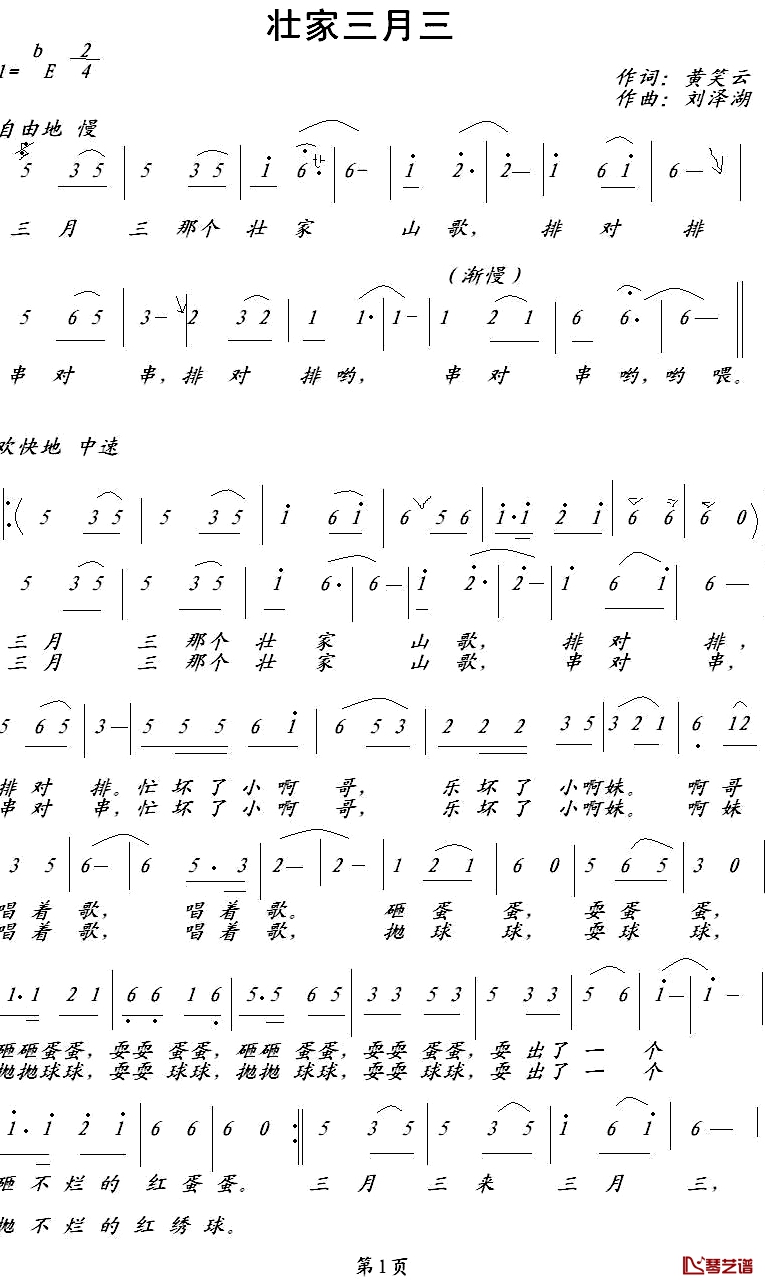 壮家三月三
1= bE 2/4
作词：黄笑云
作曲：刘泽湖
自由地 慢
5 3 5 | 5 3 5 | i 6· | 6- | i 2· | 2- | i 6 i | 6 - |
三 月 三 那个 壮 家 山 歌， 排 对 排
（渐慢）
5 6 5 | 3- 2 3 2 | 1 1· | 1- | 1 2 1 | 6 6· | 6- ||
串 对 串，排 对 排哟， 串 对 串 哟，哟 喂。
欢快地 中速
|: ( 5 3 5 | 5 3 5 | i 6 i | 6 5 6 | i·i 2 i | 6 6 | 6 0 )
5 3 5 | 5 3 5 | i 6· | 6 — | i 2· | 2- | i 6 i | 6 —
三 月 三 那个 壮 家 山 歌， 排 对 排，
三 月 三 那个 壮 家 山 歌， 串 对 串，
5 6 5 | 3— | 5 5 5 6 i | 6 5 3 | 2 2 2 3 5 | 3 2 1 | 6 12
排 对 排。忙 坏 了 小 啊 哥， 乐 坏 了 小啊妹。 啊哥
串 对 串，忙 坏 了 小 啊 哥， 乐 坏 了 小啊妹。 啊妹
3 5 | 6— | 6 5· 3 | 2— | 2 - | 1 2 1 | 6 0 | 5 6 5 | 3 0 |
唱 着 歌， 唱 着 歌。 砸 蛋 蛋， 耍 蛋 蛋，
唱 着 歌， 唱 着 歌， 抛 球 球， 耍 球 球，
1·1 2 1 | 6 6 1 6 | 5·5 6 5 | 3 3 5 3 | 5 3 3 | 5 6 | i— | i — |
砸砸蛋蛋，耍耍 蛋蛋，砸砸 蛋蛋，耍耍 蛋蛋，耍 出了 一 个
抛抛球球，耍耍 球球，抛抛 球球，耍耍 球球，耍 出了 一 个
i·i 2 i | 6 6 | 6 0 :|| 5 3 5 | 5 3 5 | i 6 i | 6 — |
砸 不 烂 的 红 蛋 蛋。 三 月 三 来 三 月 三，
抛 不 烂 的 红 绣 球。
第1页
琴艺谱